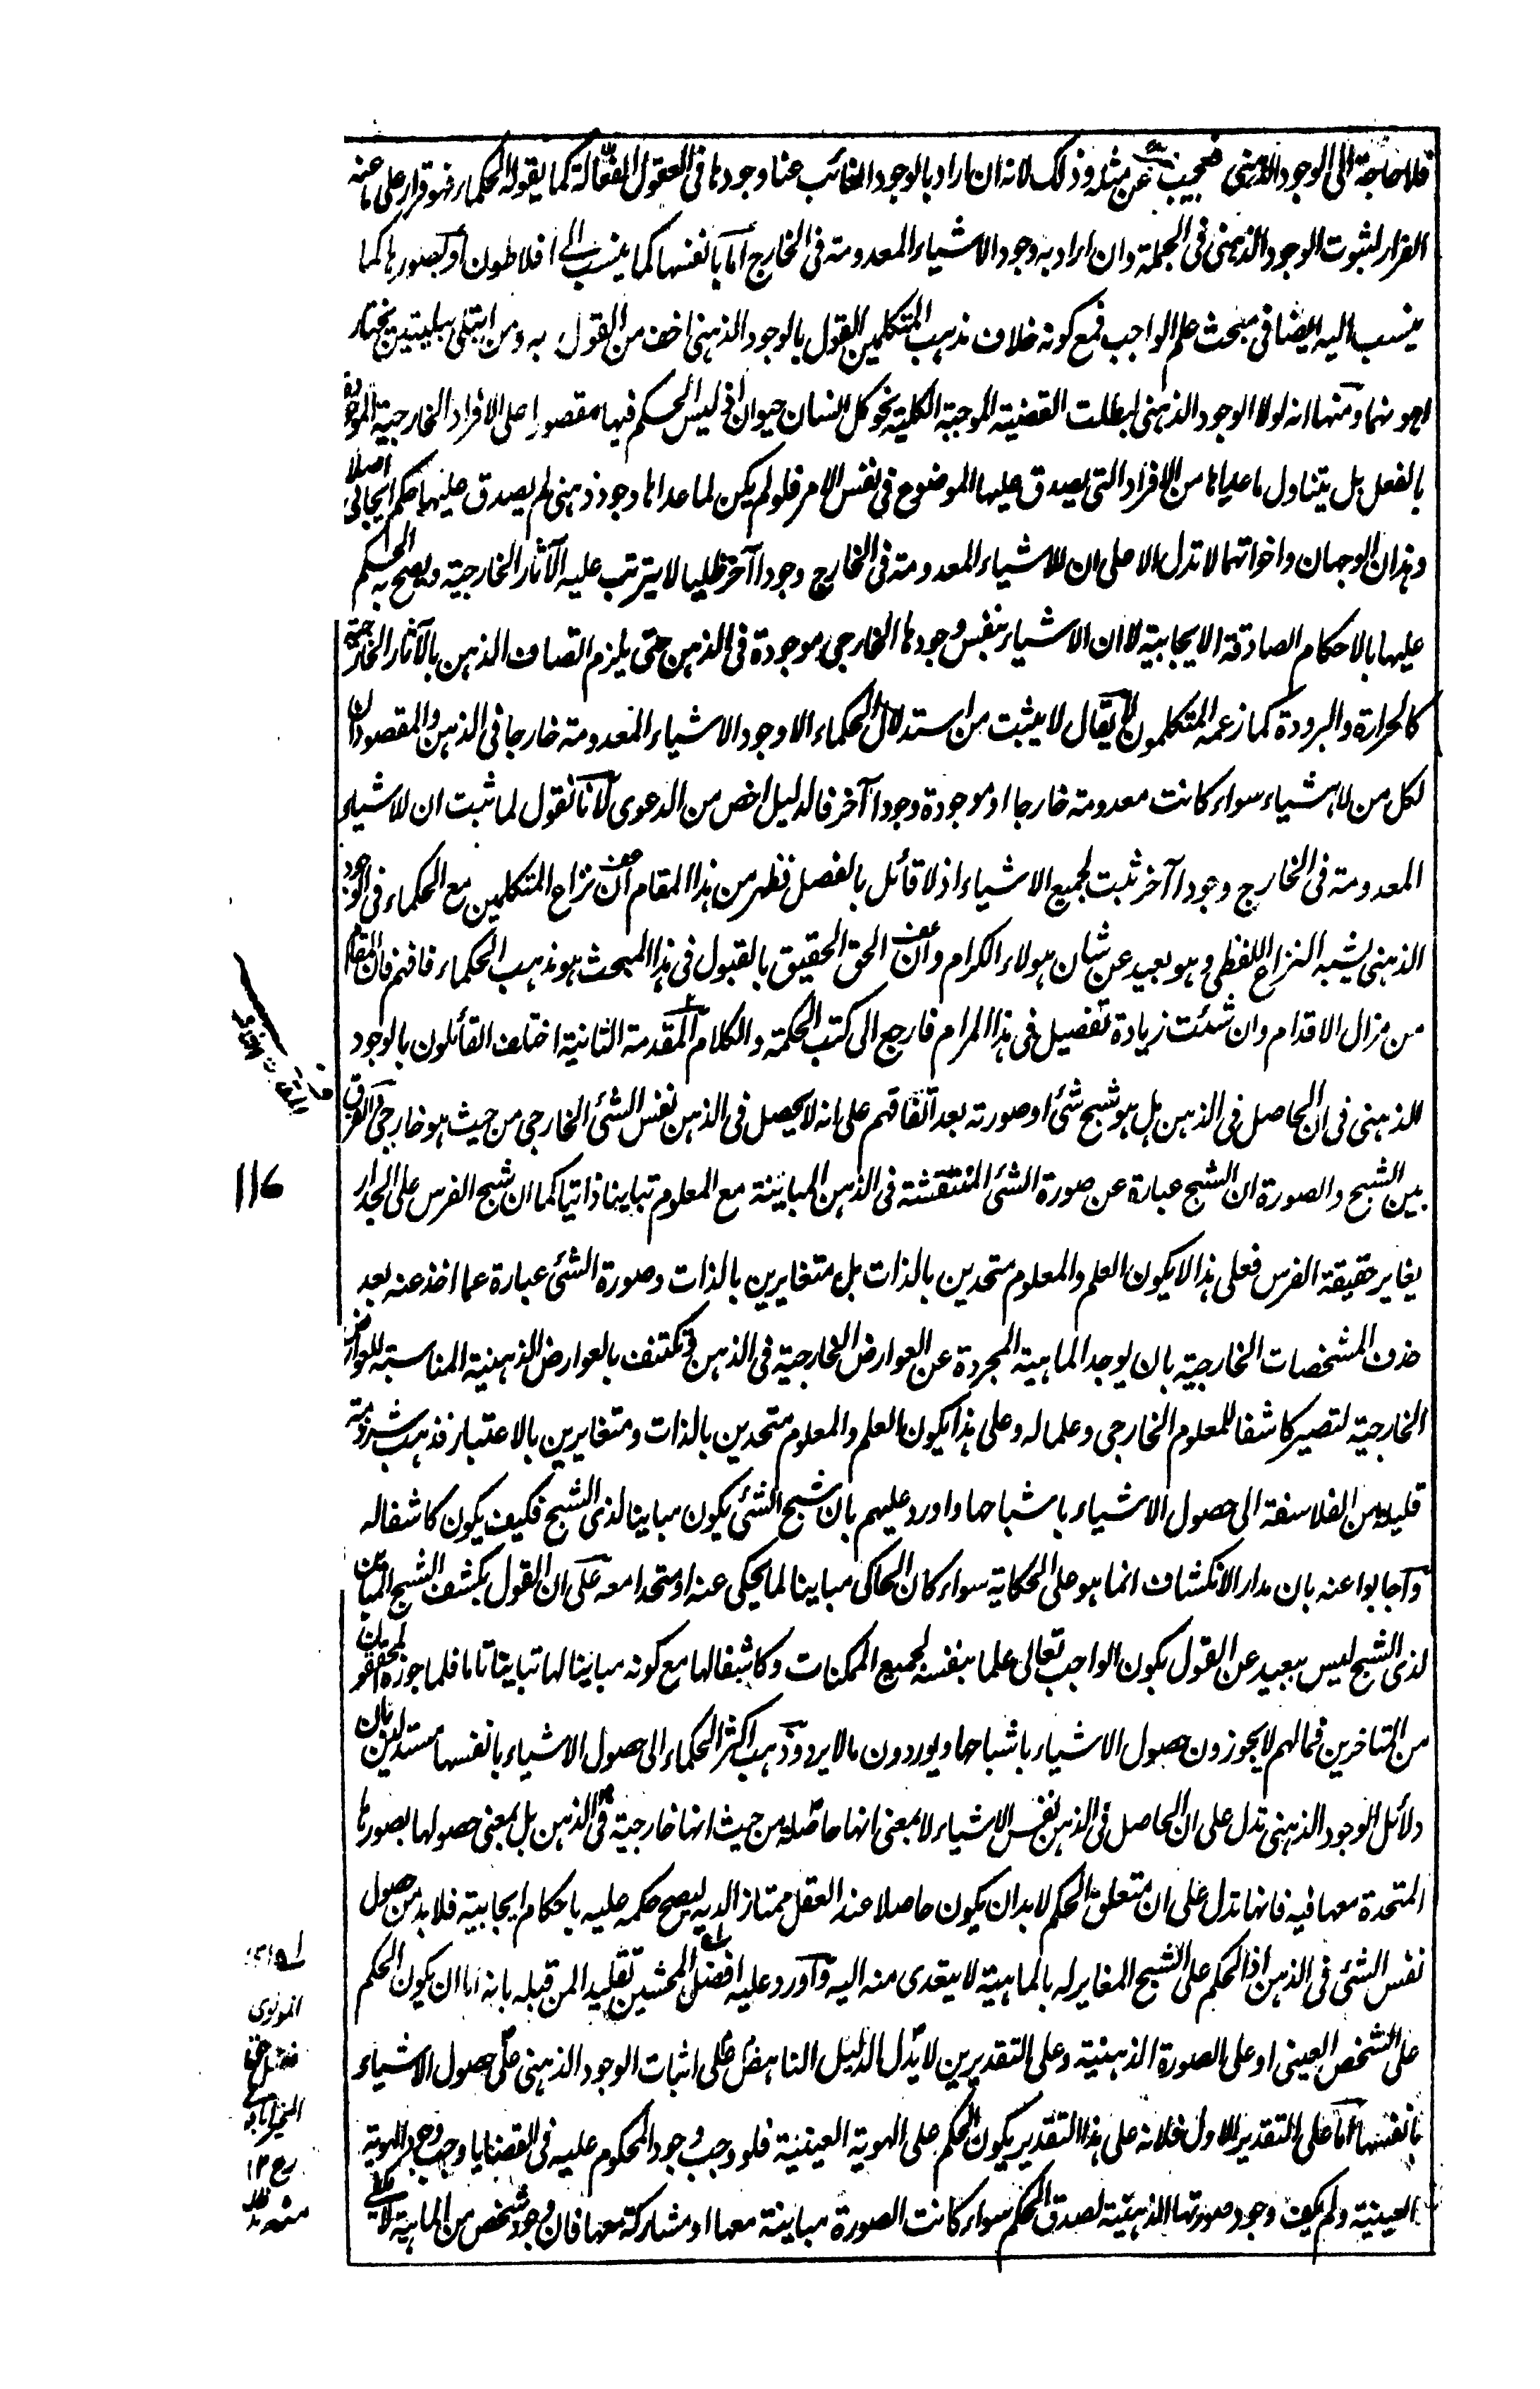 فلا حاجة الى الوجود الذهنى فعجيب عن مثله وذلك لانه ان اراد بالوجود الغائب عنا وجودها فى العقول الفعالة كما يقوله الحكماء فهو قرار على ما عنه
الفرار لثبوت الوجود الذهنى فى الجملة وان اراد به وجود الاشياء المعدومة فى الخارج اما بانفسها كما ينسب الى افلاطون او بصورها كما
ينسب اليه ايضا فى مبحث علم الواجب فمع كونه خلاف مذهب المتكلمين القول بالوجود الذهنى اخف من القول به ومن ابتلى ببليتين يختار
اهونهما ومنها انه لولا الوجود الذهنى لبطلت القضية الموجبة الكلية نحو كل انسان حيوان اذ ليس الحكم فيها مقصورا على الافراد الخارجية
بالفعل بل يتناول ما عداها من الافراد التى يصدق عليها الموضوع فى نفس الامر فلو لم يكن لما عداها وجود ذهنى لم يصدق عليها حكم ايجابى اصلا
وهذان الوجهان واخواتهما لا تدل الا على ان للاشياء المعدومة فى الخارج وجودا آخر ظليا لا يترتب عليه الآثار الخارجية ويصح به الحكم
عليها بالاحكام الصادقة الايجابية لا ان الاشياء بنفس وجودها الخارجى موجودة فى الذهن حتى يلزم اتصاف الذهن بالآثار الخارجية
كالحرارة والبرودة كما زعمه المتكلمون لا يقال لا يثبت من استدلال الحكماء الا وجود الاشياء المعدومة خارجا فى الذهن والمقصود ان
لكل من الاشياء سواء كانت معدومة خارجا او موجودة وجودا آخر فالدليل اخص من الدعوى لانا نقول لما ثبت ان للاشياء
المعدومة فى الخارج وجودا آخر ثبت لجميع الاشياء اذ لا قائل بالفصل فظهر من هذا المقام ان نزاع المتكلمين مع الحكماء فى الوجود
الذهنى يشبه النزاع اللفظى وهو بعيد عن شان هولاء الكرام وان الحق الحقيق بالقبول فى هذا المبحث هو مذهب الحكماء فافهم فان المقام
من مزال الاقدام وان شئت زيادة تفصيل فى هذا المرام فارجع الى كتب الحكمة والكلام المقدمة الثانية اختلف القائلون بالوجود
الذهنى فى ان الحاصل فى الذهن هل هو شبح شئ او صورته بعد اتفاقهم على انه لا يحصل فى الذهن نفس الشئ الخارجى من حيث هو خارجى والفرق
بين الشبح والصورة ان الشبح عبارة عن صورة الشئ المنتقشة فى الذهن المباينة مع المعلوم تباينا ذاتيا كما ان شبح الفرس على الجدار
يغاير حقيقة الفرس فعلى هذا لا يكون العلم والمعلوم متحدين بالذات بل متغايرين بالذات وصورة الشئ عبارة عما اخذ عنه بعد
حذف المشخصات الخارجية بان يوجد الماهية المجردة عن العوارض الخارجية فى الذهن وتكتنف بالعوارض الذهنية المناسبة للعوارض
الخارجية لتصير كاشفا للمعلوم الخارجى وعلما له وعلى هذا يكون العلم والمعلوم متحدين بالذات ومتغايرين بالاعتبار فذهب شرذمة
قليلة من الفلاسفة الى حصول الاشياء باشباحها واورد عليهم بان شبح الشئ يكون مباينا لذى الشبح فكيف يكون كاشفا له
واجابوا عنه بان مدار الانكشاف انما هو على الحكاية سواء كان الحاكى مباينا لما يحكى عنه او متحدا معه على ان القول بكشف الشبح المباين
لذى الشبح ليس ببعيد عن القول بكون الواجب تعالى علما بنفسه لجميع الممكنات وكاشفا لها مع كونه مباينا لها تباينا تاما فلما جوزه المحققون
من المتاخرين فما لهم لا يجوزون حصول الاشياء باشباحها ويوردون ما لا يرد وذهب اكثر الحكماء الى حصول الاشياء بانفسها مستدلين بان
دلائل الوجود الذهنى تدل على ان الحاصل فى الذهن نفس الاشياء لا بمعنى انها حاصلة من حيث انها خارجية فى الذهن بل بمعنى حصولها بصورها
المتحدة معها فيه فانها تدل على ان متعلق الحكم لا بد ان يكون حاصلا عند العقل ممتازا لديه ليصح حكمه عليه باحكام ايجابية فلا بد من حصول
نفس الشئ فى الذهن اذ الحكم على الشبح المغاير له بالماهية لا يتعدى منه اليه واورد عليه افضل المحشين تقليدا لمن قبله بانه اما ان يكون الحكم
على الشخص العينى او على الصورة الذهنية وعلى التقديرين لا يدل الدليل الناهض على اثبات الوجود الذهنى على حصول الاشياء
بانفسها اما على التقدير الاول فلانه على هذا التقدير يكون الحكم على الهوية العينية فلو وجب وجود المحكوم عليه فى القضايا وجب وجود الهوية
العينية ولم يكف وجود صورتها الذهنية لصدق الحكم سواء كانت الصورة مباينة معها او مشاركة معها فان وجود شخص من الماهية لا
١١٦
المولوى